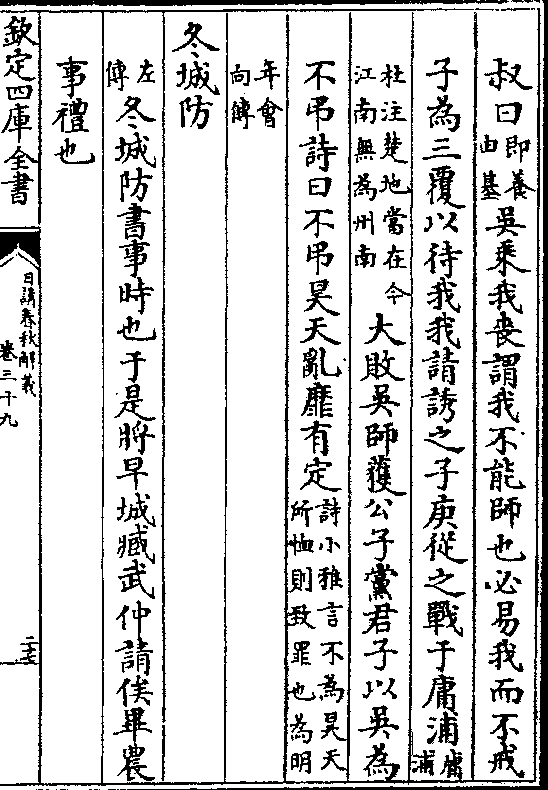 叔曰即養由基吳乘我喪謂我不能師也必易我而不戒
子為三覆以待我我請誘之子庚從之戰于庸浦庸浦
杜注楚地當在今江南無為州南大敗吳師獲公子黨君子以吳為
不吊詩曰不吊昊天亂靡有定詩小雅言不為昊天所恤則致罪也為明
年會向傳
冬城防
左傳冬城防書事時也于是將早城臧武仲請俟畢農
事禮也
欽定四庫全書
日講春秋解義
卷三十九